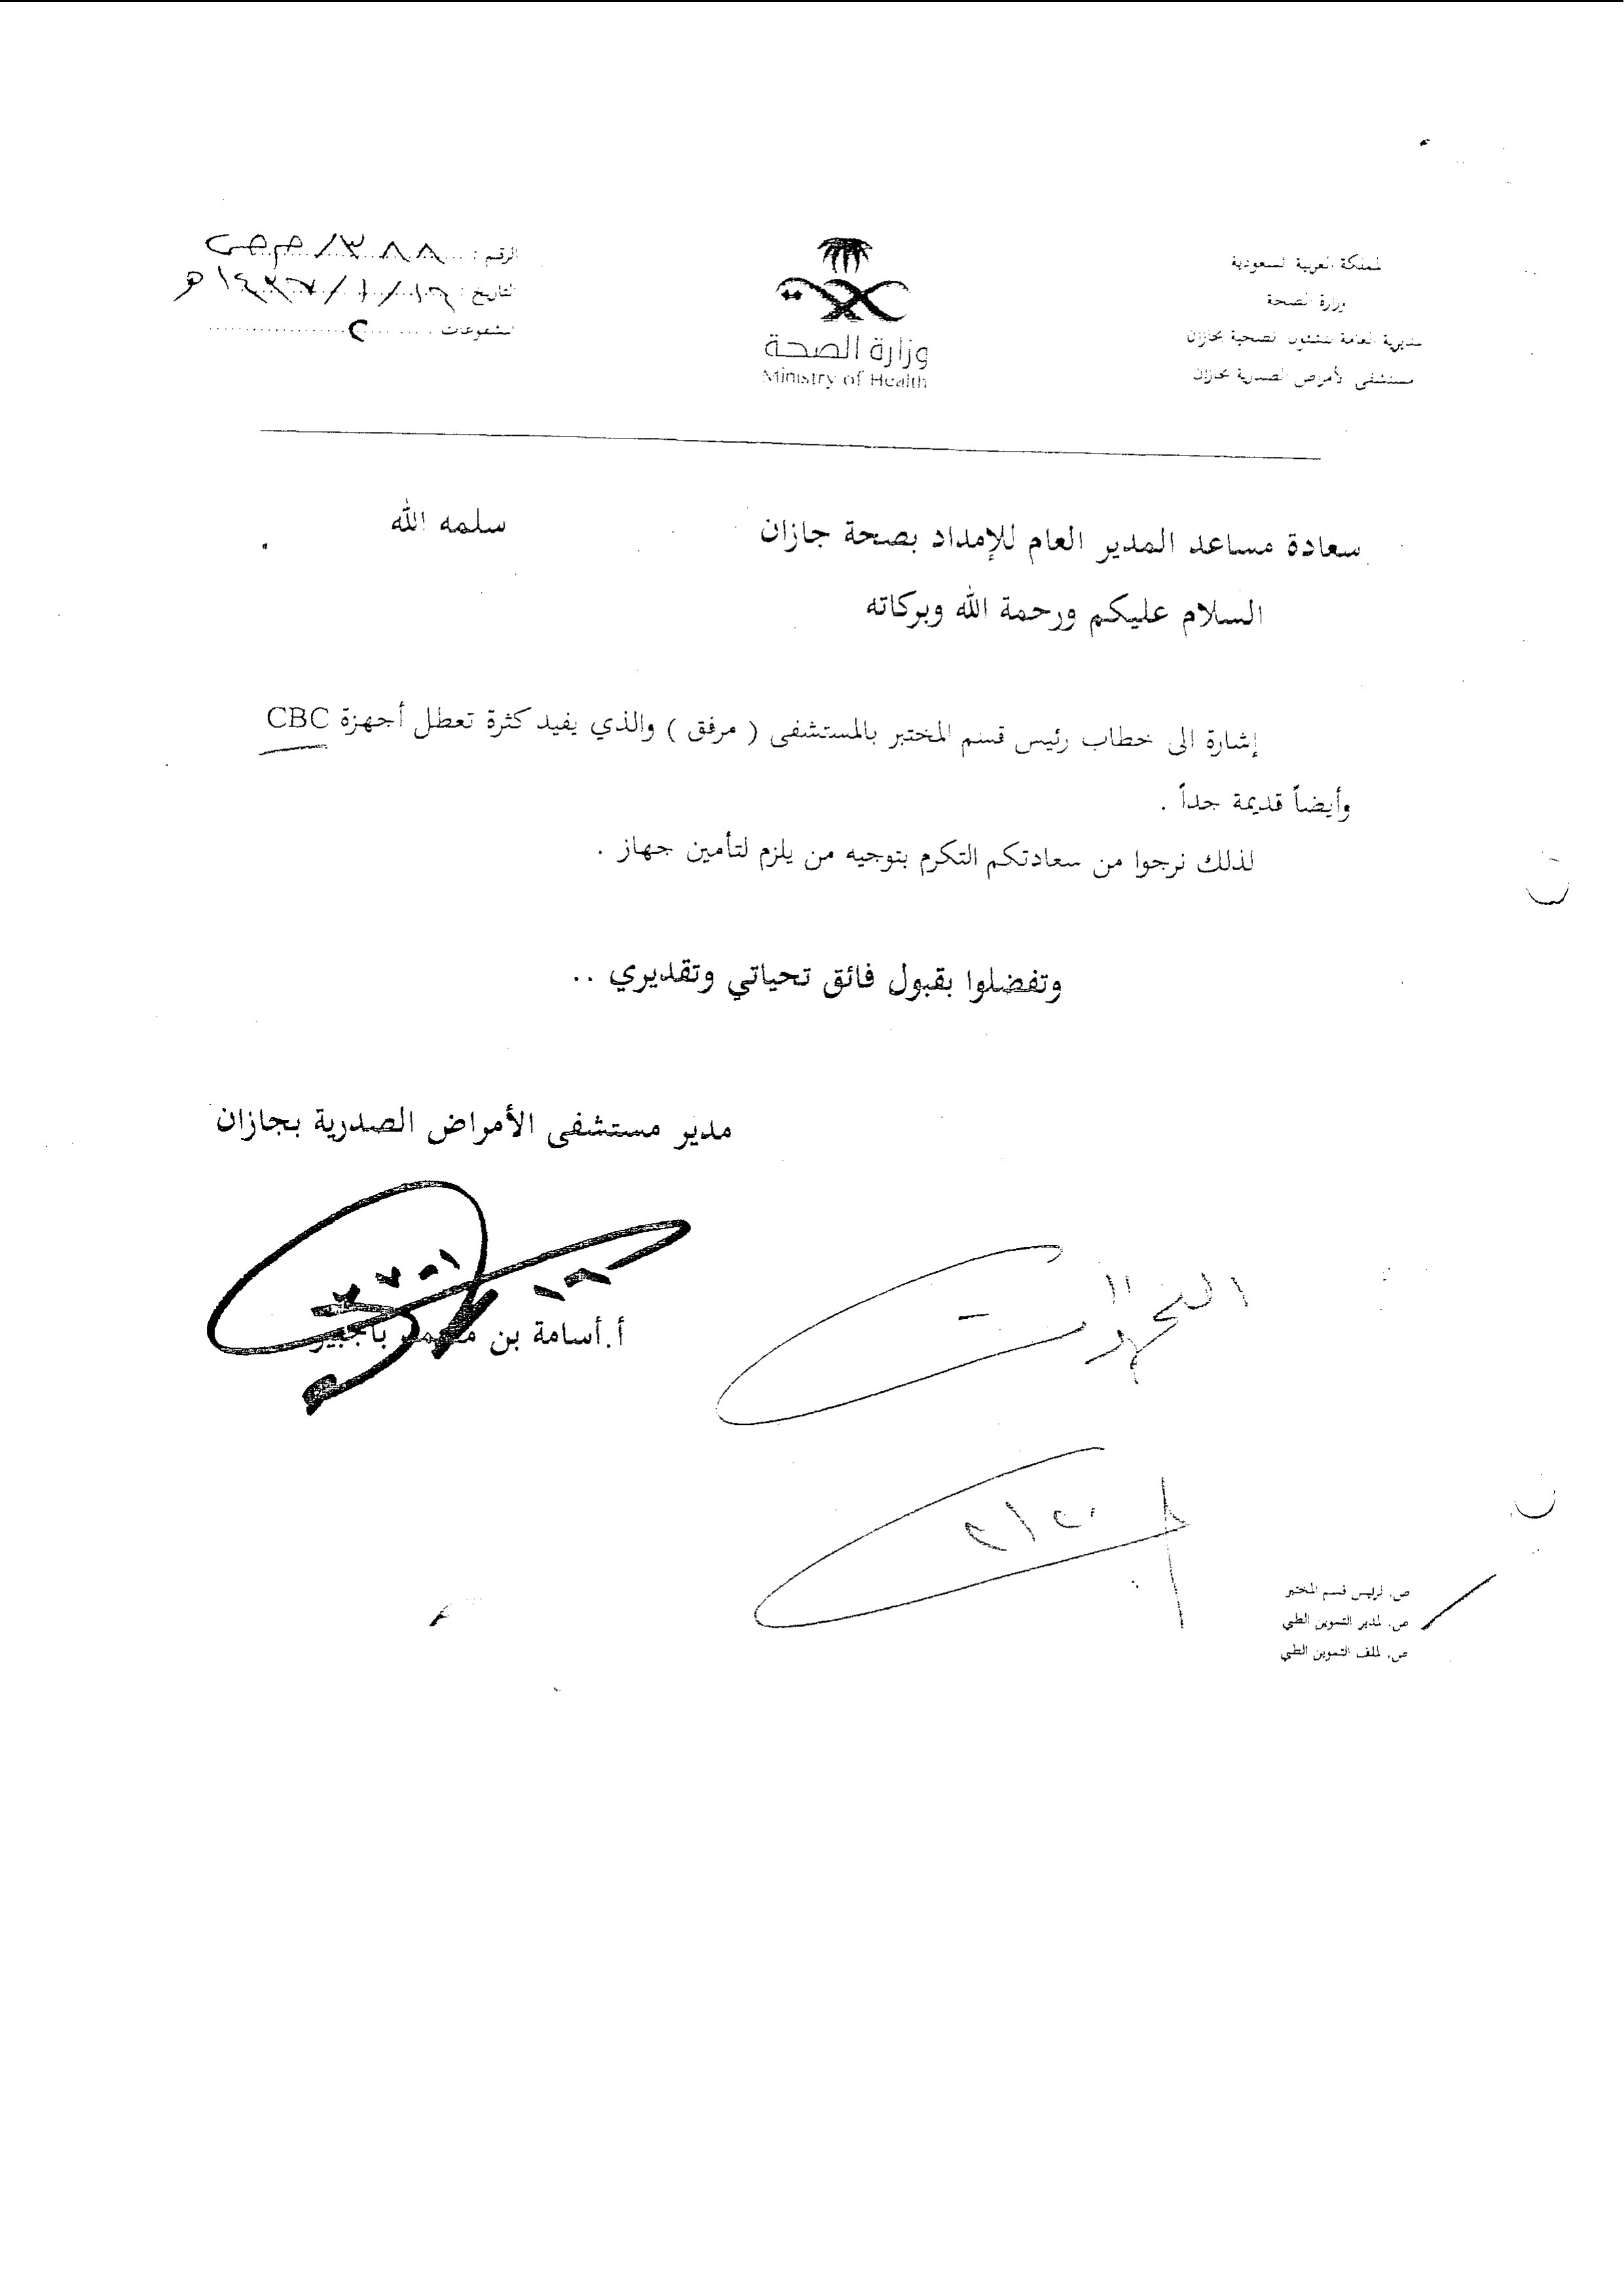 المملكة العربية السعودية
وزارة الصحة
المديرية العامة للشئون الصحية بجازان
مستشفى الأمراض الصدرية بجازان
وزارة الصحة
Ministry of Health
الرقم : ٣٨٨/م ص
التاريخ : ١٤٣٧/١/١٦ه
المشفوعات : ٢
سعادة مساعد المدير العام للإمداد بصحة جازان سلمه الله
السلام عليكم ورحمة الله وبركاته
إشارة الى خطاب رئيس قسم المختبر بالمستشفى ( مرفق ) والذي يفيد كثرة تعطل أجهزة CBC
وأيضاً قديمة جداً .
لذلك نرجوا من سعادتكم التكرم بتوجيه من يلزم لتأمين جهاز .
وتفضلوا بقبول فائق تحياتي وتقديري ..
مدير مستشفى الأمراض الصدرية بجازان
أ.أسامة بن
ص. لرئيس قسم المختبر
ص. لمدير التموين الطبي
ص. لملف التموين الطبي